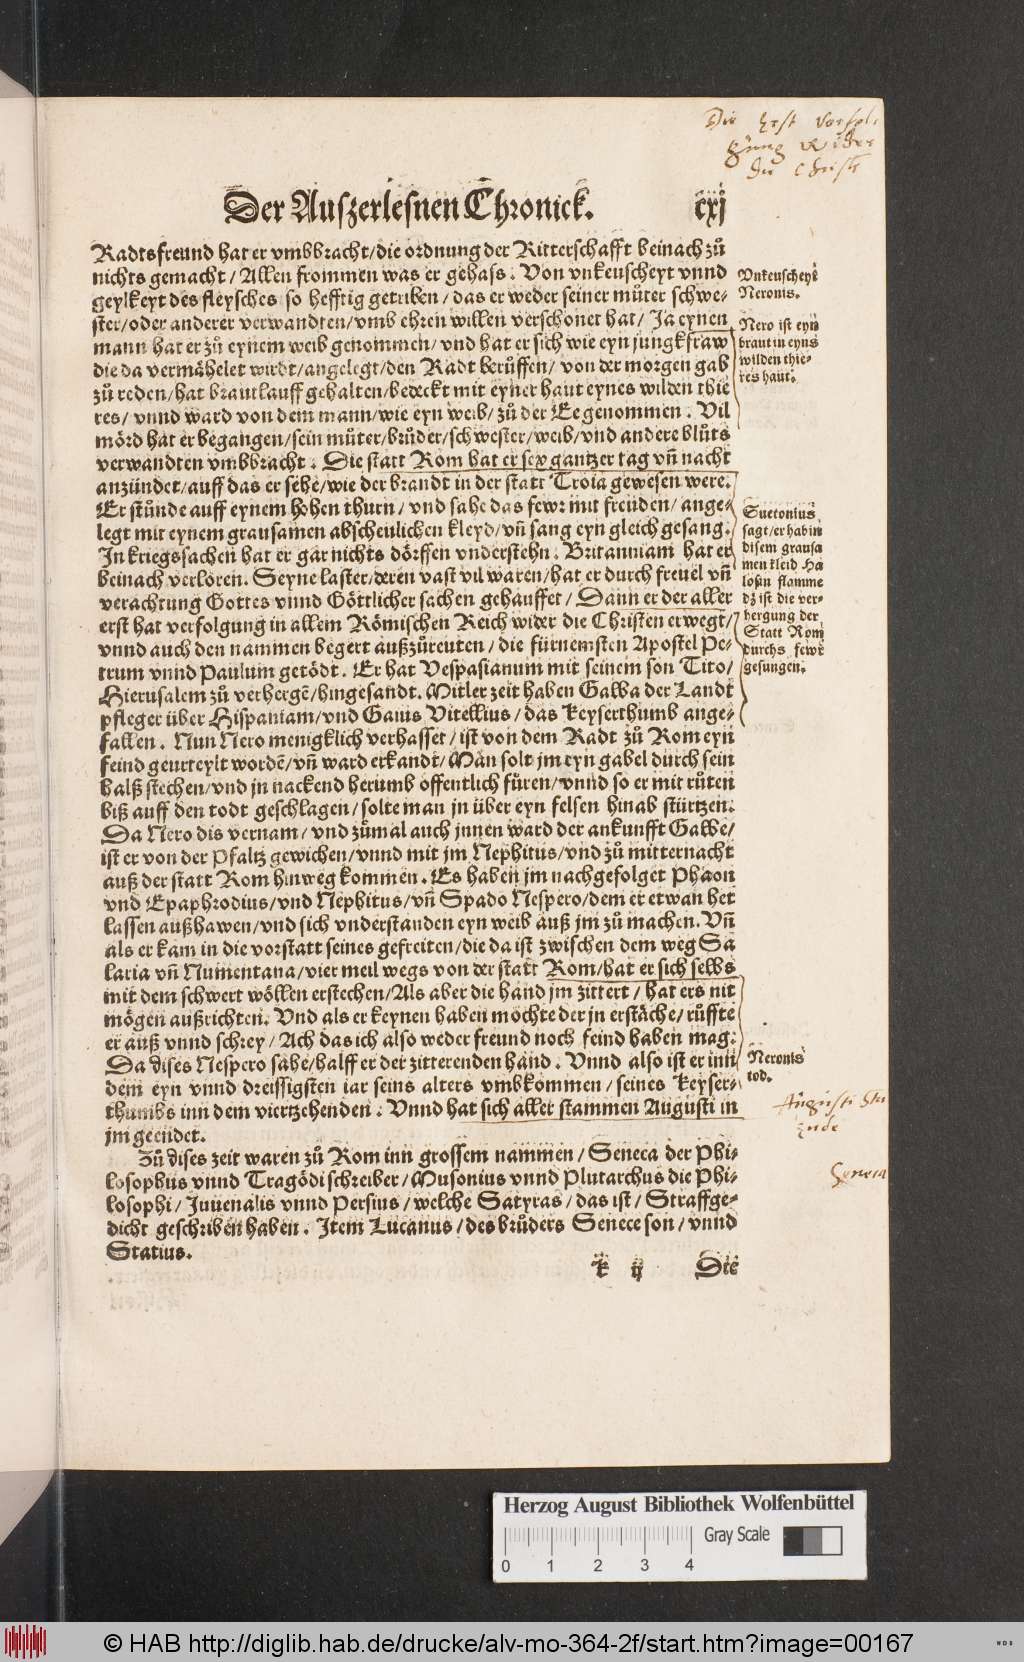 Die Erst verfol
gung Wider
die Christe
Der Auszerlesnen Chronick. cxj
Radtsfreund hat er vmbbracht/die ordnung der Ritterschafft beinach zů
nichts gemacht/Allen frommen was er gehass. Von vnkeuscheyt vnnd
geylkeyt des fleysches so hefftig getriben/das er weder seiner můter schwe-
ster/oder anderer verwandten/vmb ehren willen verschonet hat/Ja eynen
mann hat er zů eynem weib genommen/vnd hat er sich wie eyn jungkfraw
die da vermåhelet wirdt/angelegt/den Radt berůffen/von der morgen gab
zů reden/hat brautlauff gehalten/bedeckt mit eyner haut eynes wilden thie
res/vnnd ward von dem mann/wie eyn weib/zů der Ee genommen. Vil
mörd hat er begangen/sein můter/brůder/schwester/weib/vnd andere blůts
verwandten vmbbracht. Die statt Rom hat er sex gantzer tag vn̄ nacht
anzündet/auff das er sehe/wie der brandt in der statt Troia gewesen were.
Er stůnde auff eynem hohen thurn/vnd sahe das fewr mit freuden/ange-
legt mit eynem grausamen abscheulichen kleyd/vn̄ sang eyn gleich gesang.
In kriegssachen hat er gar nichts dörffen vnderstehn. Britanniam hat er
beinach verloren. Seyne laster/deren vast vil waren/hat er durch freuel vn̄
verachtung Gottes vnnd Göttlicher sachen gehauffet/Dann er der aller
erst hat verfolgung in allem Römischen Reich wider die Christen erwegt/
vnnd auch den nammen begert außzůreuten/die fürnemsten Apostel Pe-
trum vnnd Paulum getödt. Er hat Vespasianum mit seinem son Tito/
Hierusalem zů verhergē/hingesandt. Mitler zeit haben Galba der Landt
pfleger über Hispaniam/vnd Gaius Vitellius/das Keyserthumb ange-
fallen. Nun Nero menigklich verhasset/ist von dem Radt zů Rom eyn
feind geurteylt wordē/vn̄ ward erkandt/Man solt jm eyn gabel durch sein
halß stechen/vnd jn nackend herumb offentlich fůren/vnnd so er mit růten
biß auff den todt geschlagen/solte man jn über eyn felsen hinab stürtzen.
Da Nero dis vernam/vnd zůmal auch jnnen ward der ankunfft Galbe/
ist er von der Pfaltz gewichen/vnnd mit jm Nephitus/vnd zů mitternacht
auß der statt Rom hinweg kommen. Es haben jm nachgefolget Phaon
vnd Epaphrodius/vnd Nephitus/vn̄ Spado Nespero/dem er etwan het
lassen außhawen/vnd sich vnderstanden eyn weib auß jm zů machen. Vn̄
als er kam in die vorstatt seines gefreiten/die da ist zwischen dem weg Sa
laria vn̄ Numentana/vier meil wegs von der statt Rom/hat er sich selbs
mit dem schwert wöllen erstechen/Als aber die hand jm zittert/hat ers nit
mögen außrichten. Vnd als er keynen haben mochte der jn erståche/růffte
er auß vnnd schrey/Ach das ich also weder freund noch feind haben mag.
Da dises Nespero sahe/halff er der zitterenden hand. Vnnd also ist er inn
dem eyn vnnd dreissigsten iar seins alters vmbkommen/seines Keyser-
thumbs inn dem viertzehenden. Vnnd hat sich aller stammen Augusti in
jm geendet.
Zů dises zeit waren zů Rom inn grossem nammen/Seneca der Phi-
losophus vnnd Tragödischreiber/Musonius vnnd Plutarchus die Phi-
losophi/Juuenalis vnnd Persius/welche Satyras/das ist/Straffge-
dicht geschriben haben. Item Lucanus/des brůders Senece son/vnnd
Statius.
k ij Die
Vnkeuscheyt
Neronis.
Nero ist eyn
braut in eyns
wilden thie-
res haut.
Suetonius
sagt/er hab in
disem grausa
men kleid Ha
losin flamme
dz ist die ver-
hergung der
Statt Rom
durchs fewr
gesungen.
Neronis
tod.
Augusti
ende
Seneca
Herzog August Bibliothek Wolfenbüttel
Gray Scale
0 1 2 3 4
© HAB http://diglib.hab.de/drucke/alv-mo-364-2f/start.htm?image=00167